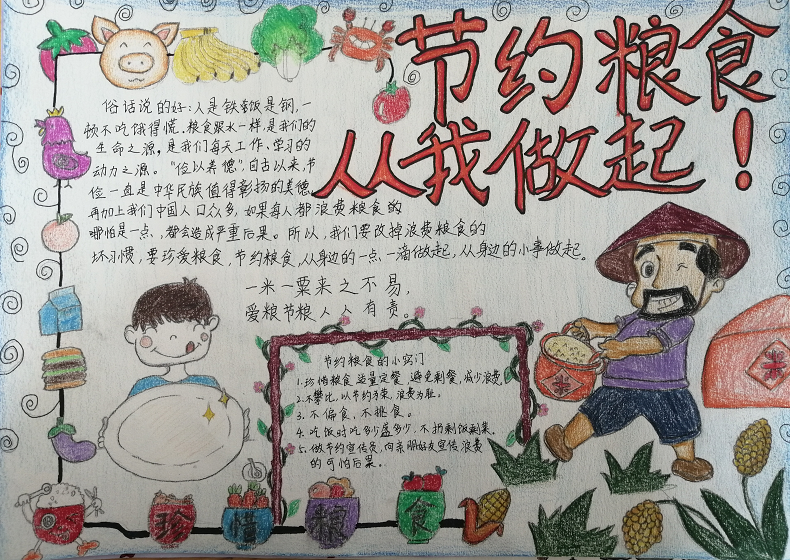 节约粮食
从我做起!
俗话说的好:人是铁饭是钢,一
顿不吃饿得慌。粮食跟水一样,是我们的
生命之源,是我们每天工作、学习的
动力之源。“俭以养德”,自古以来,节
俭一直是中华民族值得彰扬的美德,
再加上我们中国人口众多,如果每人都浪费粮食的
哪怕是一点,都会造成严重后果。所以,我们要改掉浪费粮食的
坏习惯,要珍爱粮食,节约粮食,从身边的一点、一滴做起,从身边的小事做起。
一米一粟来之不易,
爱粮节粮人人有责。
节约粮食的小窍门
1.珍惜粮食适量定餐,避免剩餐,减少浪费。
2.不攀比,以节约为荣,浪费为耻。
3.不偏食,不挑食。
4.吃饭时吃多少盛多少,不扔剩饭剩菜。
5.做节约宣传员,向亲朋好友宣传浪费
的可怕后果。
米
米
珍惜粮食